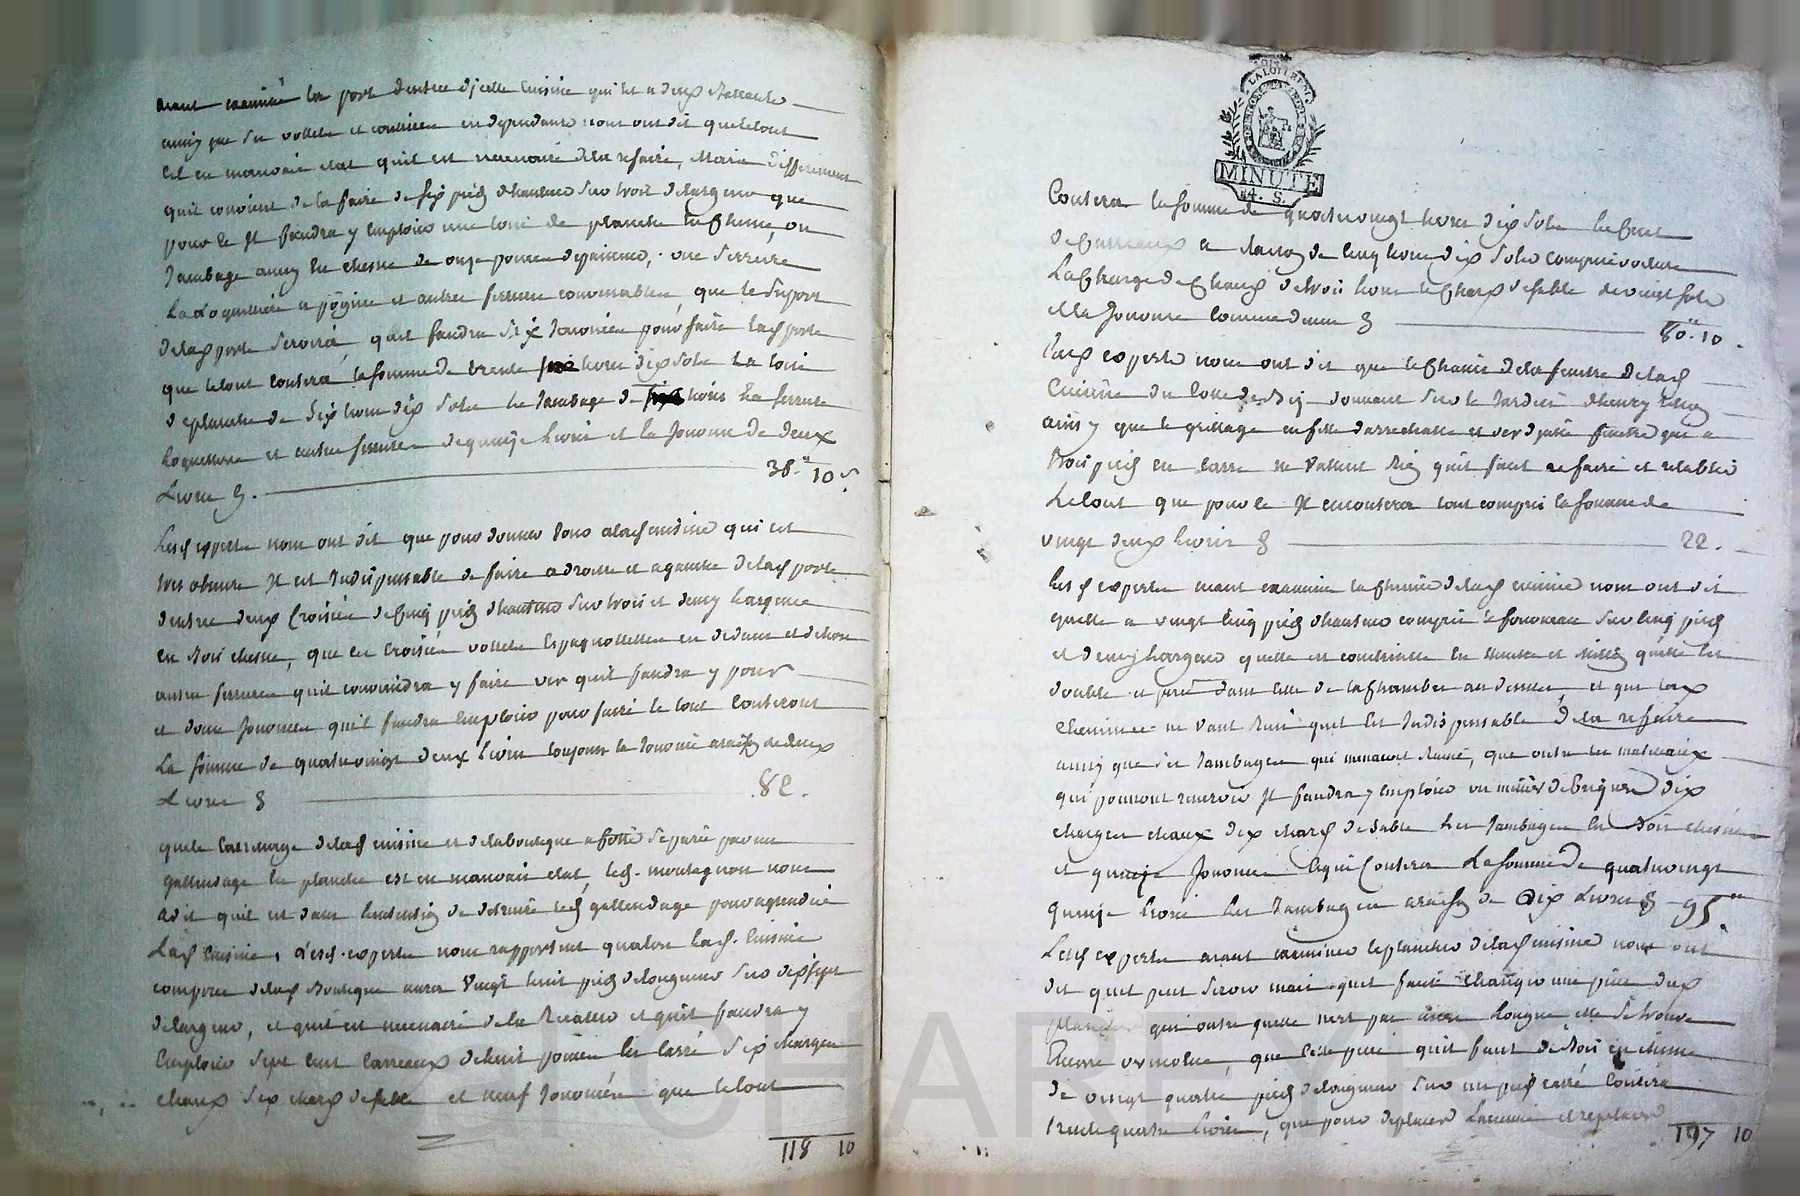 aiant examiné la porte dentrée dicelle Cuisine qui est a deux Battants
ainsy que Ses vollets et contière en dependants nous ont dit que letout
Est en mauvais etat quil est necessaire dela refaire, Mais differement
quil convient de la faire de six pieds dhauteur Sur trois delargeur que
pour ce Il faudra y Emploier une toise de planche En Chesne, un
Jambage aussy En chesne de onze pouces depaisseur, une Serrure
La Loquetiere et autres ferrure convenables, que le Suport
delad porte Servira, quil faudra Six Journées pour faire lad porte
que letout Coutera la somme de trente livres dix Sols La toise
deplanche de Six livres dix Sols Le Jambage de livres La ferrure
Loquettiere et autres ferrures de quinze Livres et la Journée de deux
Livres 36.# 10 s.
Lesd experts nous ont dit que pour donner Jour alad cuisine qui est
tres obscure Il est Indispensable de faire a droitte et agauche delad porte
dentrée deux Croisées de Cinq pieds dhauteur Sur trois et demy Largeur
en Bois chesne, que les Croisées vollets Espagnollettes en dedans et dehors
autres ferrures quil conviendra y faire ver quil faudra y pour
et douze Journées quil faudra Emploier pour faire le tout Couteront
La somme de quatrevingt deux Livres toujours la Journée araison de deux
Livres 82.
que le Carrelage delad cuisine et delaboutique a Cotté Separée par un
gallendage En planche est en mauvais etat, led. montagnon nous
a dit quil est dans Lintention de detruire led gallendage pour agrandir
Lad Cuisine, Lesd. experts nous rapportent qualors lad. Cuisine
composée delad Boutique aura Vingt huit pieds delongueur Sur dix sept
delargeur, et quil est necessaire de la Recarreler et quil faudra y
Emploier Sept Cent Carreaux dehuit pouces En Carré Six charges
chaux Six chars de sable et neuf Journées que letout
118 10
LA LOI
MINUTE
4. S.
Coutera la somme de quatrevingt livres dix Sols Le Cent
de Carreaux a raison de Cinq livres dix Sols Compris voiture
La Charge de Chaux de trois livres le Char de sable devingt sols
et la Journée Comme dessus 80.# 10.
Lesd experts nous ont dit que le Chassis dela fenetre delad
Cuisine du Cotté de Bize donnant Sur le Jardin dhenry
ainsy que le grillage en fil darrechalle et ver dyeelle fenetre qui a
trois pieds en Carré ne Vallent Rien quil faut refaire et retablir
Letout que pour ce Il en coutera tout compris la somme de
vingt deux livres 22.
Lesd experts aiant examiné la Cheminée delad cuisine nous ont dit
quelle a vingt Cinq pieds dhauteur compris le fourneau Sur Cinq pieds
et demy Largeur quelle est construitte En et quelle Est
double et passe dans celle de la Chambre au dessus, et que lad
cheminée ne Vaut Rien quil Est Indispensable de la refaire
aussy que Ses Jambages qui menacent Ruine, que outre les materiaux
qui pourront reservir Il faudra y Emploier un millier de Briques dix
charges chaux dix chars de Sable Les Jambages En Bois chesne
et quinze Journées Ce qui Coutera La somme de quatrevingt
quinze livres Les Jambages araison de Dix Livres 95#
Lesd experts aiant examiné le plancher delad cuisine nous ont
dit quil peut Servir mais quil faut changer une piece dud
plancher qui outre quelle nest pas assez Longue elle Se trouve
Encore vermolue, que Cette piece quil faut de Bois en chesne
de vingt quatre pieds delongueur Sur un pied carré Coutera
trente quatre Livres, que pour deplacer Lancienne et replacer
197 10